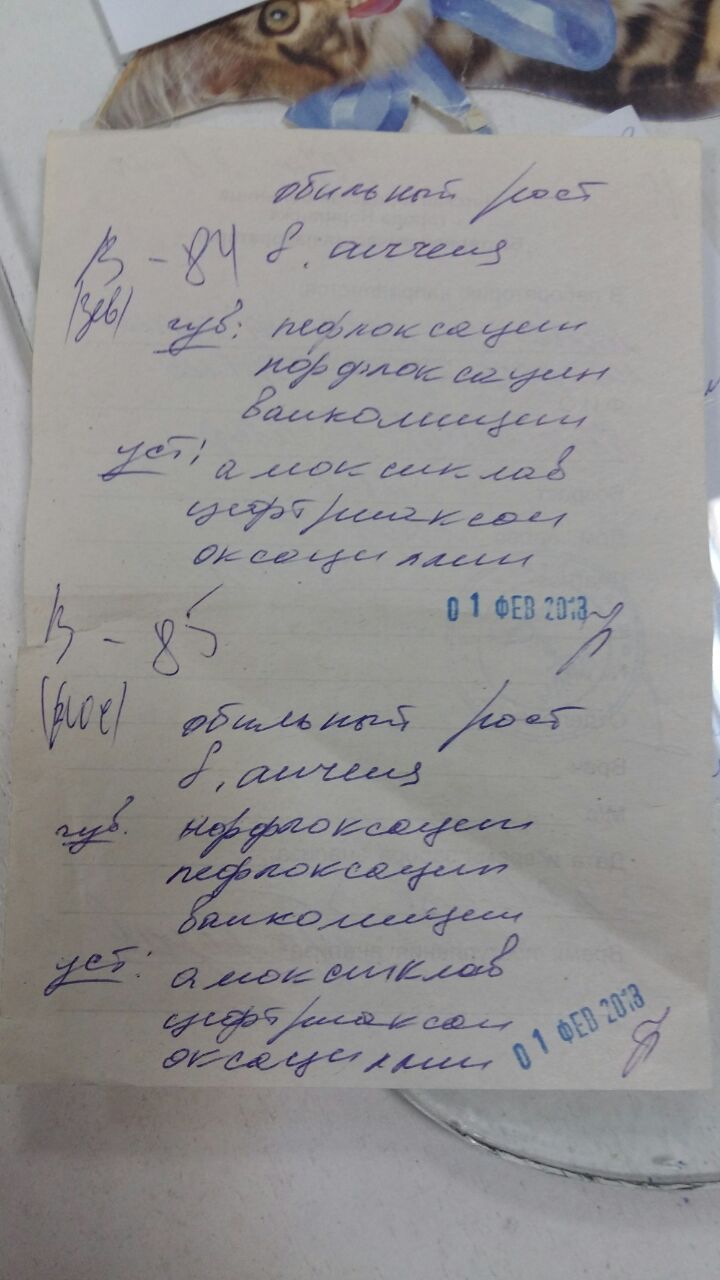 обильный рост
В - 84 S. aureus
(зев) чув: пефлоксацин
норфлоксацин
ванкомицин
уст: амоксиклав
цефтриаксон
оксациллин
01 ФЕВ 2018
В - 85
(нос) обильный рост
S. aureus
чув. норфлоксацин
пефлоксацин
ванкомицин
уст: амоксиклав
цефтриаксон
оксациллин
01 ФЕВ 2018